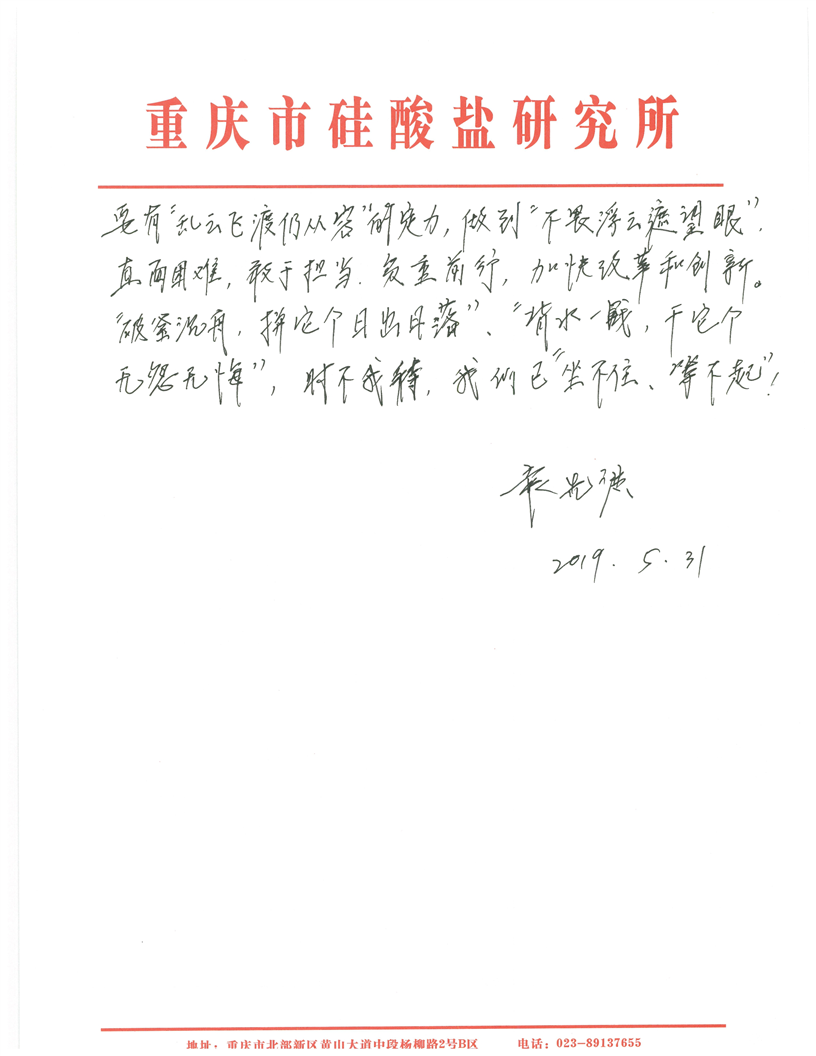 重庆市硅酸盐研究所
要有“乱云飞渡仍从容”的定力，做到“不畏浮云遮望眼”，
直面困难，敢于担当，负重前行，加快改革和创新。
“破釜沉舟，拼它个日出日落”、“背水一戰，干它个
无怨无悔”，时不我待，我们已“坐不住、等不起”！
2019.5.31
地址：重庆市北部新区黄山大道中段杨柳路2号B区 电话：023-89137655